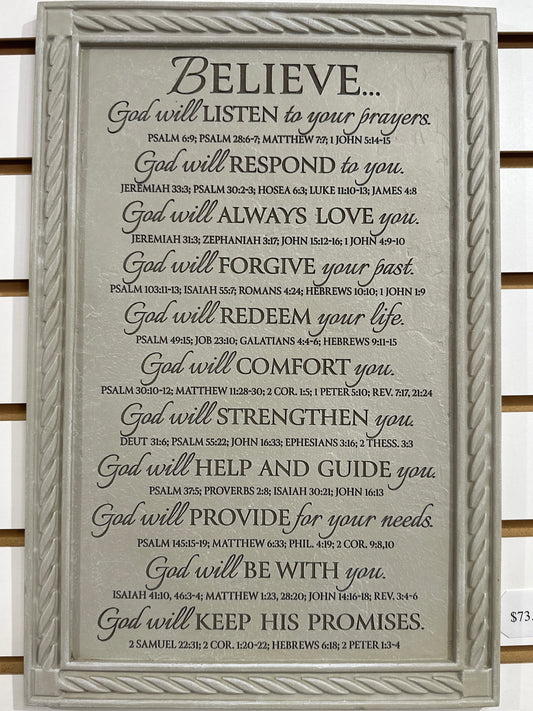 BELIEVE...
God will LISTEN to your prayers.
PSALM 6:9; PSALM 28:6-7; MATTHEW 7:7; 1 JOHN 5:14-15
God will RESPOND to you.
JEREMIAH 33:3; PSALM 30:2-3; HOSEA 6:3; LUKE 11:10-13; JAMES 4:8
God will ALWAYS LOVE you.
JEREMIAH 31:3; ZEPHANIAH 3:17; JOHN 15:12-16; 1 JOHN 4:9-10
God will FORGIVE your past.
PSALM 103:11-13; ISAIAH 55:7; ROMANS 4:24; HEBREWS 10:10; 1 JOHN 1:9
God will REDEEM your life.
PSALM 49:15; JOB 23:10; GALATIANS 4:4-6; HEBREWS 9:11-15
God will COMFORT you.
PSALM 30:10-12; MATTHEW 11:28-30; 2 COR. 1:5; 1 PETER 5:10; REV. 7:17, 21:24
God will STRENGTHEN you.
DEUT 31:6; PSALM 55:22; JOHN 16:33; EPHESIANS 3:16; 2 THESS. 3:3
God will HELP AND GUIDE you.
PSALM 37:5; PROVERBS 2:8; ISAIAH 30:21; JOHN 16:13
God will PROVIDE for your needs.
PSALM 145:15-19; MATTHEW 6:33; PHIL. 4:19; 2 COR. 9:8,10
God will BE WITH you.
ISAIAH 41:10, 46:3-4; MATTHEW 1:23, 28:20; JOHN 14:16-18; REV. 3:4-6
God will KEEP HIS PROMISES.
2 SAMUEL 22:31; 2 COR. 1:20-22; HEBREWS 6:18; 2 PETER 1:3-4
$73.